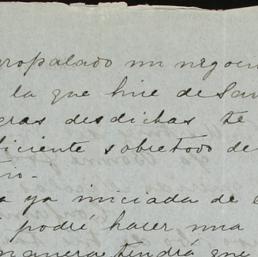 propalado mi negoci
la que hice de San
gras desdichas te
ficiente sobretodo de
rio.
a ya iniciada de e
podré hacer una
manera tendrá que